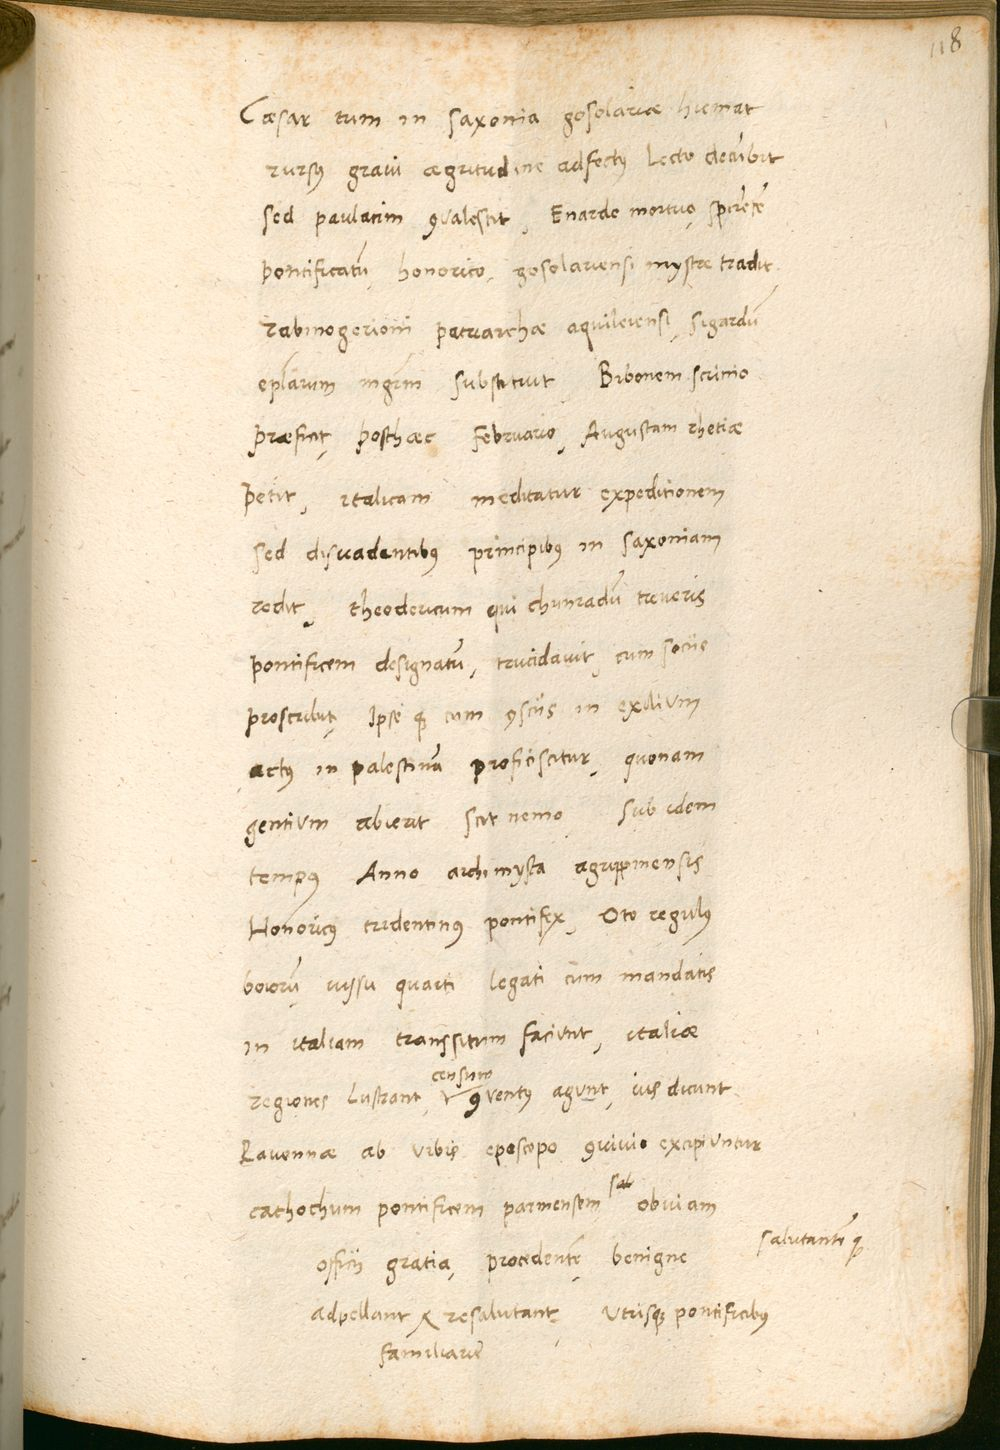 118
Cæsar tum in saxonia gosolariæ hiemat
rursꝰ graui ægritudine adfectꝰ lecto decūbit
sed paulatim ꝯvalescit, Enardo mortuo, spirēsē
pontificatū, honorico, gosolariensi mystæ tradit,
rabinogerioni patriarchæ aquileiensi, sigardū
eplarum mgrm substituit, Bibonem scrinio
præficit, posthæc februario, Augustam rhetiæ
petit, italicam meditatur expeditionem
sed disuadentibꝰ principibꝰ in saxoniam
redit, theodericum qui chunradū treveris
pontificem designatū, trucidauit, cum sociis
proscribit, Ipse qꝫ cum ꝯsciis in exilivm
actꝰ in palestinā proficiscitur, quonam
gentium abierit scit nemo, Sub idem
tempꝰ Anno archimysta agrippinensis
Honoricꝰ tridentinꝰ pontifex, Oto regulꝰ
boiorū iussu quarti legati cum mandatis
in italiam transsitum faciunt, italiæ
regiones lustrant, censum ꝯventꝰ agunt, ius dicunt
Ravennæ ab urbis episcopo ꝯvivio excipiuntur
cathochum pontificem parmensem sal obuiam
officii gratia, procedentē, benigne salutantē qꝫ
adpellant & resalutant, Utrisqꝫ pontificibꝰ
familiarē